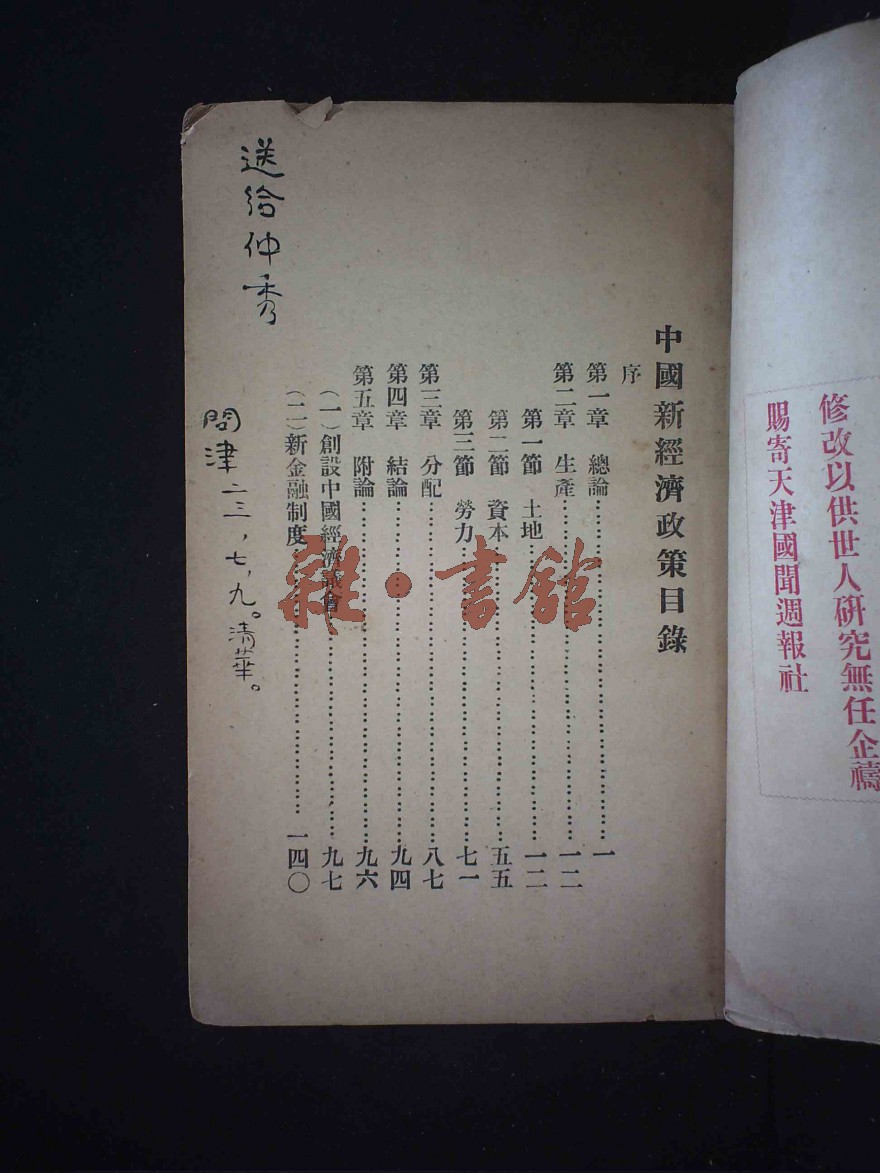 修改以供世人研究無任企禱
賜寄天津國聞週報社
中國新經濟政策目錄
序
第一章 總論…………一
第二章 生產…………一二
第一節 土地…………一二
第二節 資本…………五五
第三節 勞力…………七一
第三章 分配…………八七
第四章 結論…………九四
第五章 附論…………九六
(一)創設中國經濟議會…………九七
(二)新金融制度…………一四〇
送給仲秀
問津 二三,七,九。清華。
雜·書館